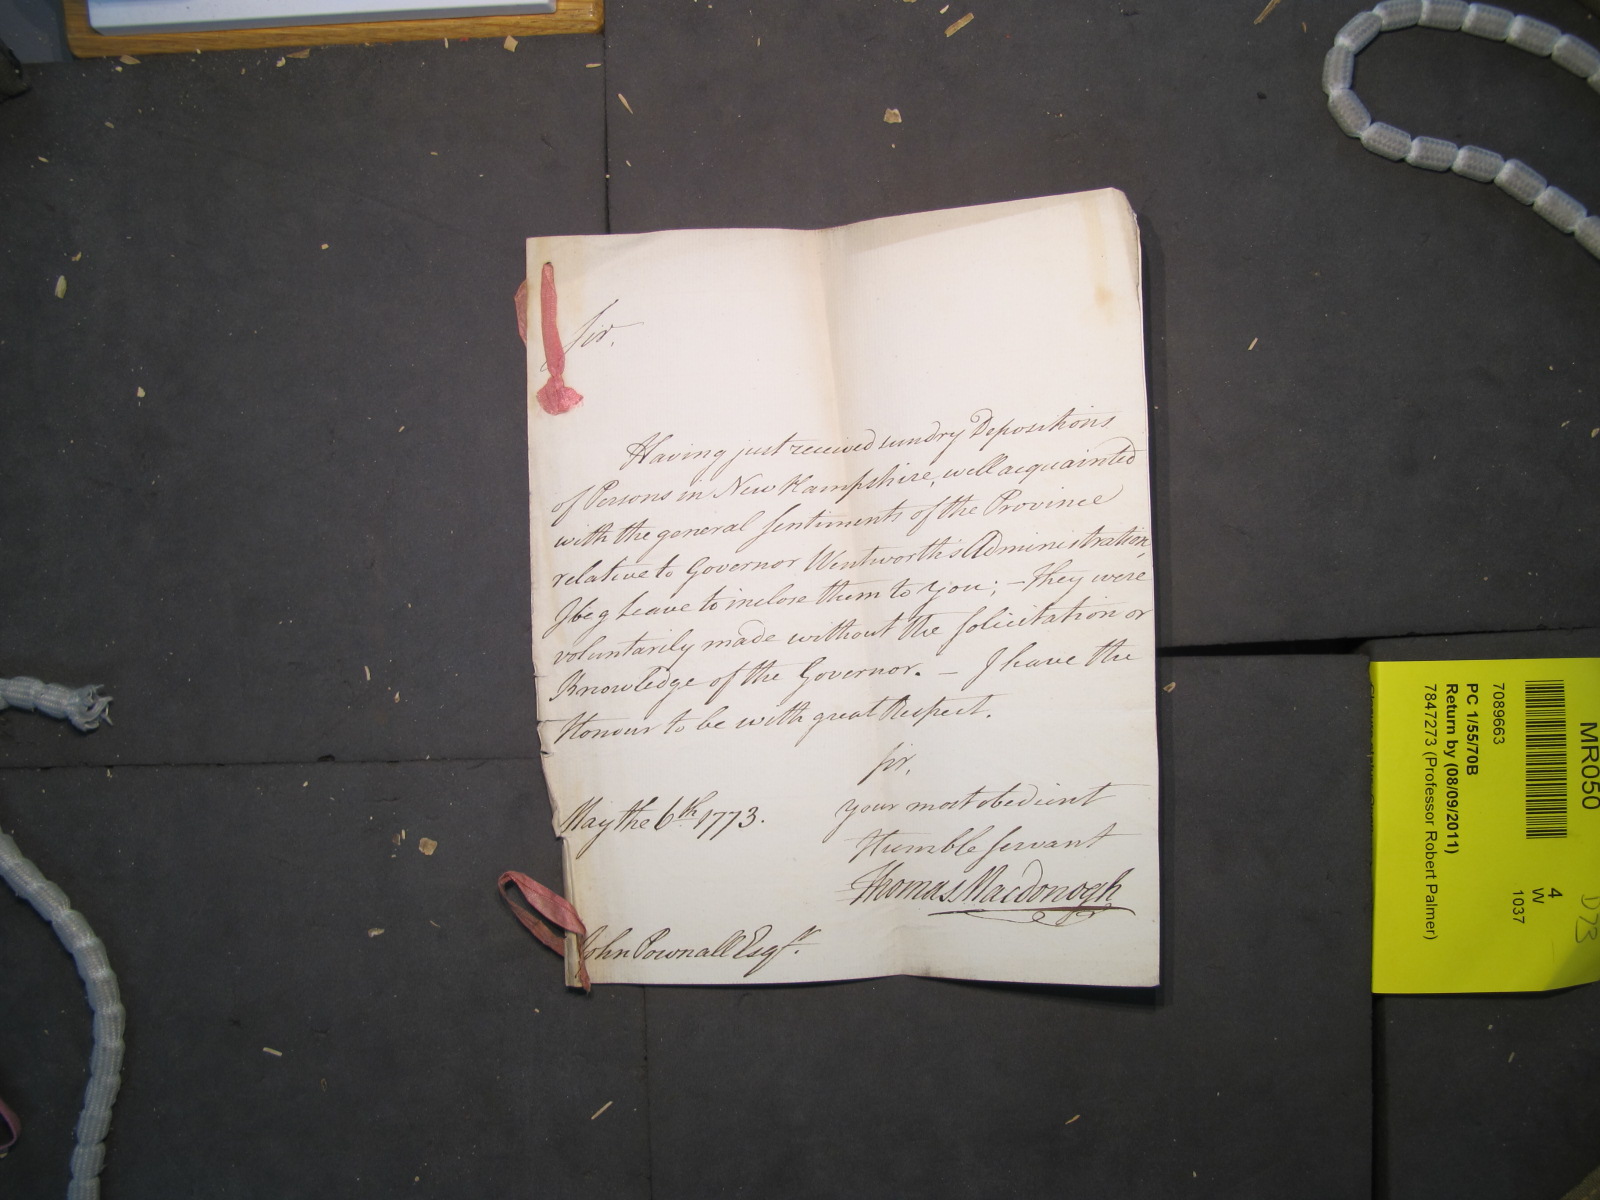 Sir.
Having just received sundry Depositions
of Persons in New Hampshire, well acquainted
with the general Sentiments of the Province
relative to Governor Wentworth's Administration,
I beg Leave to inclose them to you; – They were
voluntarily made without the Solicitation or
Knowledge of the Governor. – I have the
Honour to be with great Respect.
Sir,
your most obedient
Humble Servant
Thomas Macdonogh
May the 6th 1773.
John Pownall Esqr.
MR050
7089663
PC 1/55/70B
Return by (08/09/2011)
7847273 (Professor Robert Palmer)
4
W
1037
D73